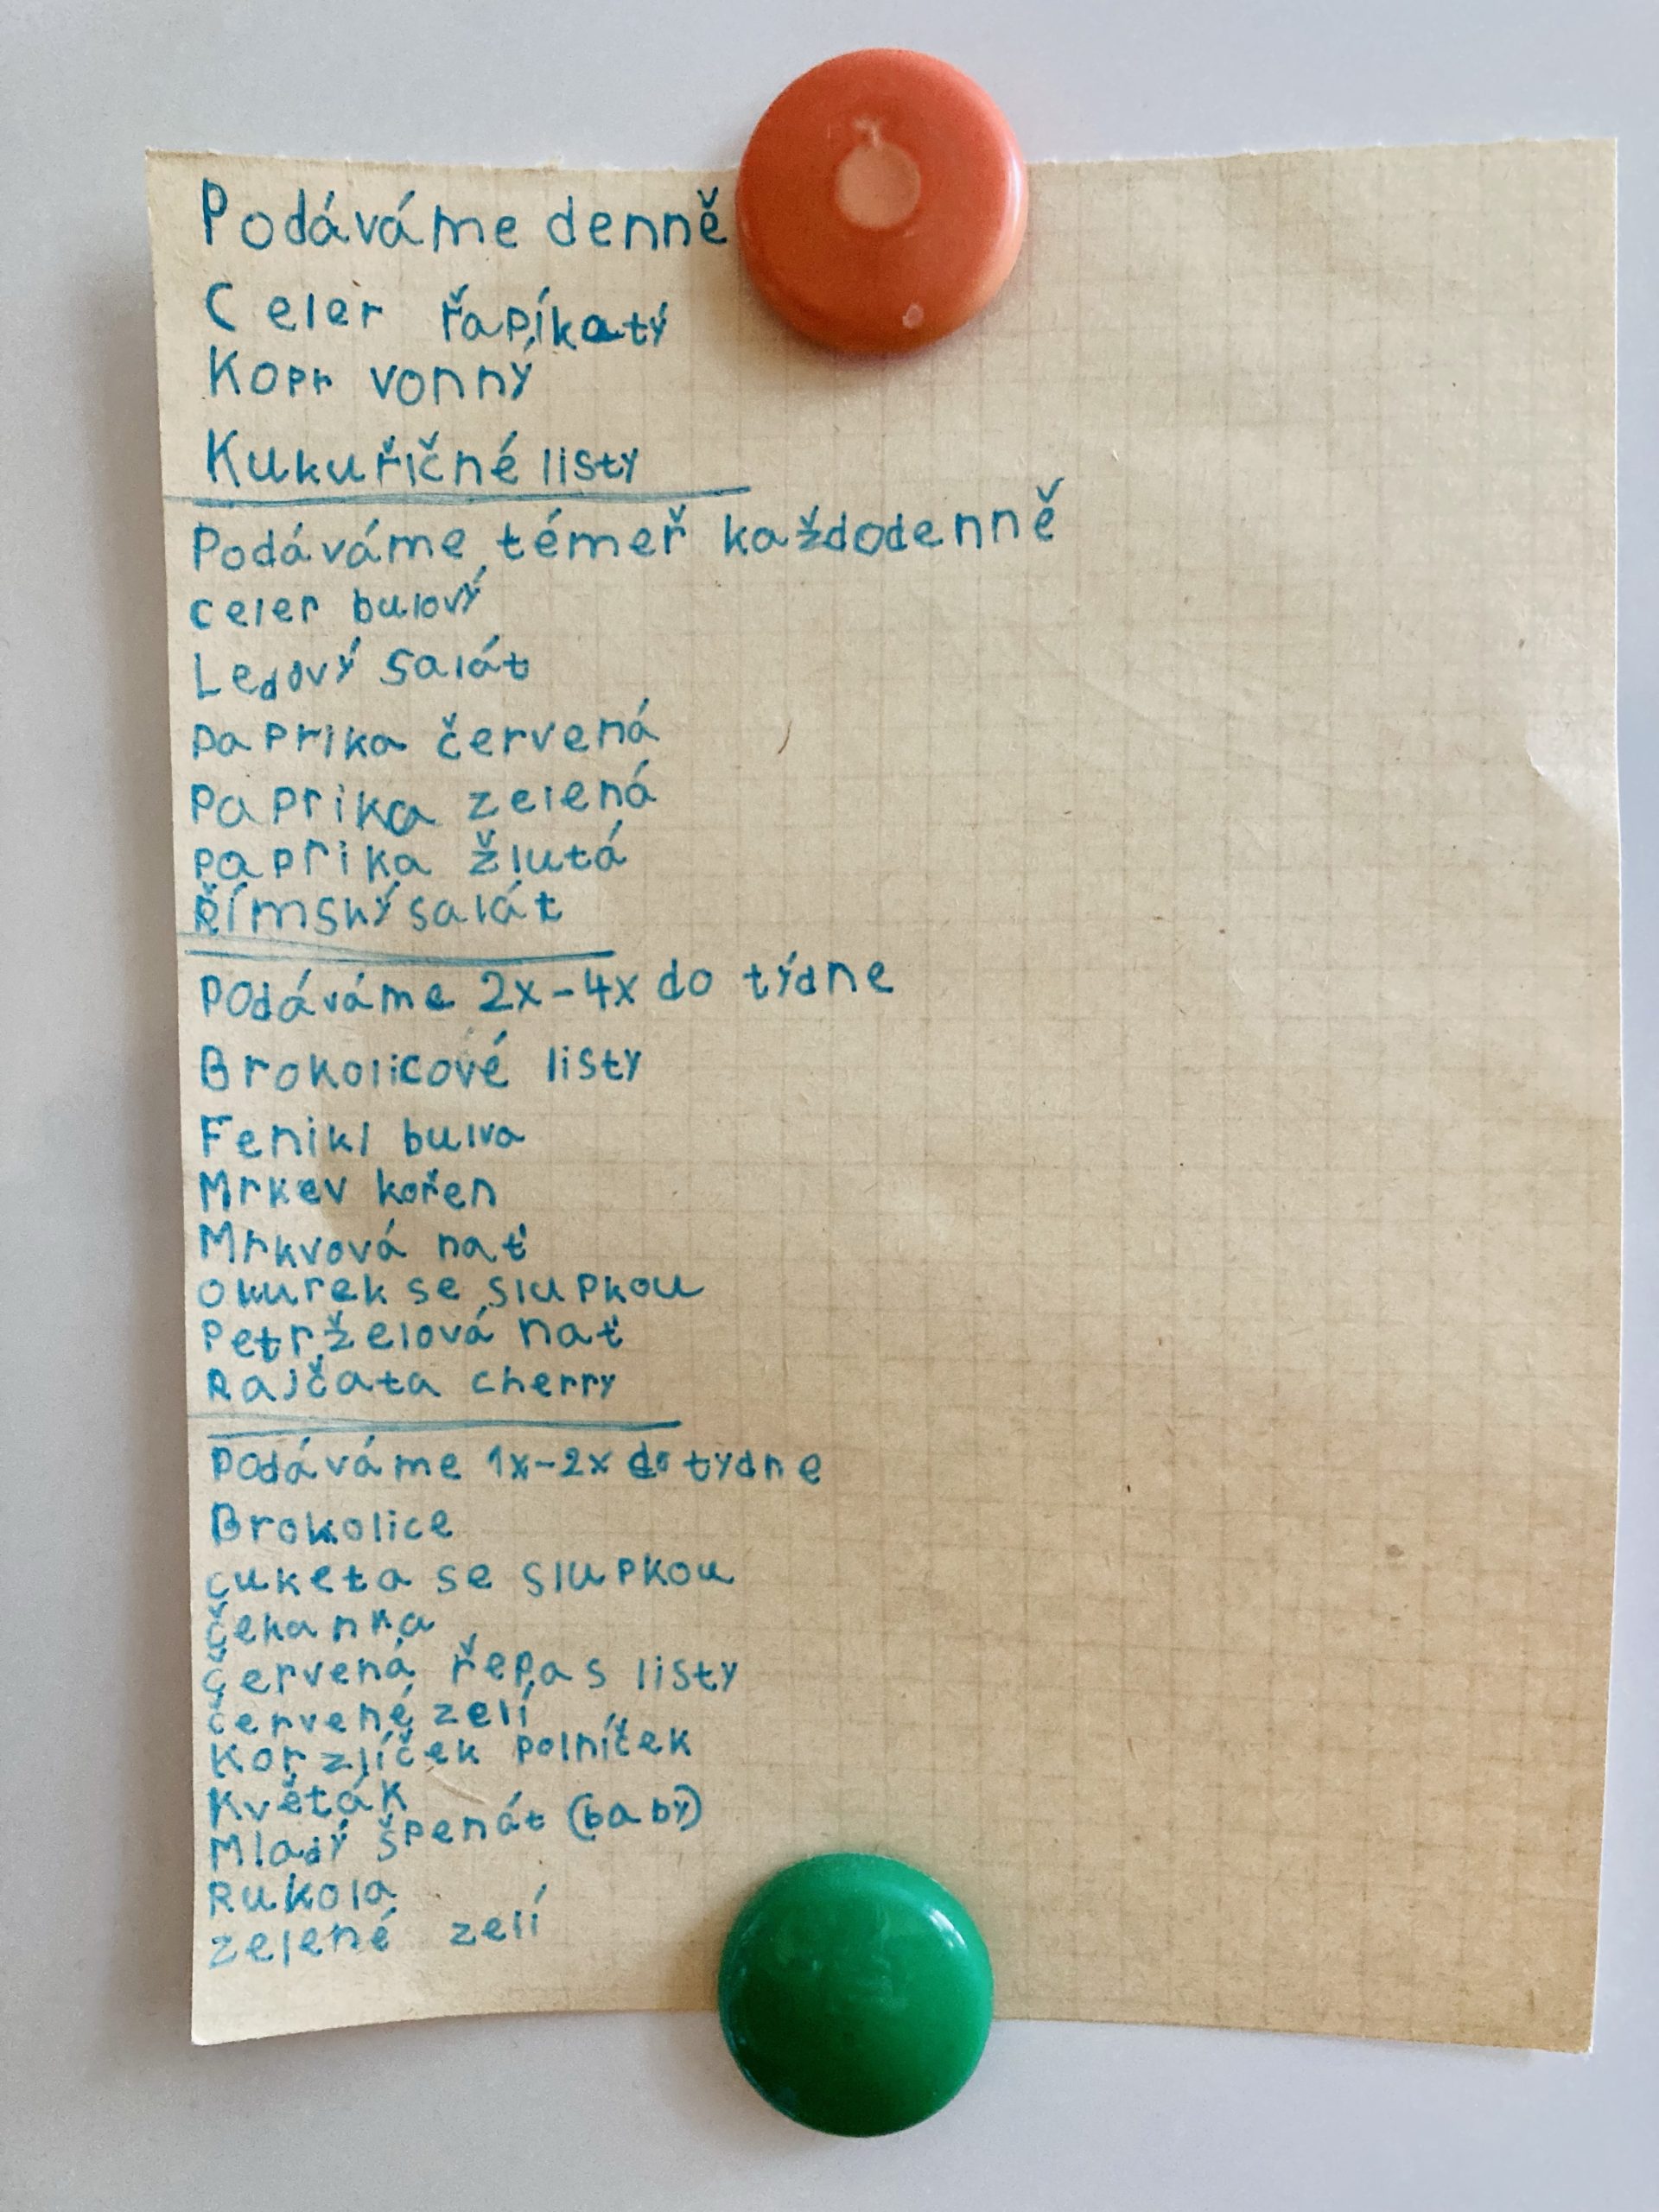 Podáváme denně
Celer řapíkatý
Kopr vonný
Kukuřičné listy
Podáváme témeř každodenně
celer bulový
Ledový salát
Paprika červená
Paprika zelená
paprika žlutá
Římský salát
Podáváme 2x-4x do týdne
Brokolicové listy
Fenikl bulva
Mrkev kořen
Mrkvová nať
okurek se slupkou
Petrželová nať
Rajčata cherry
Podáváme 1x-2x do tydne
Brokolice
cuketa se slupkou
čekanka
červená řepa s listy
červené zelí
Korzlíček polníček
Květák
Mladý špenát (baby)
Rukola
zelené zelí